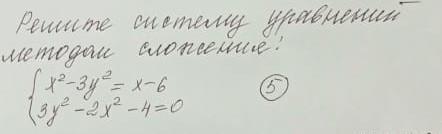 Решите систему уравнений
методом сложение:
{ x² - 3y² = x - 6
{ 3y² - 2x² - 4 = 0
⑤